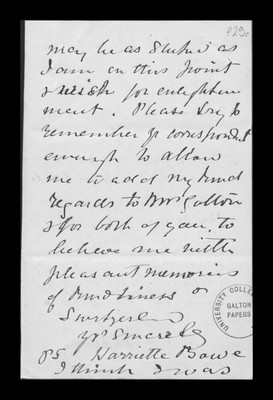 223r
may be as stupid as
I am on this point
& wish for enlighten
ment. Please try to
remember yr correspondent
enough to allow
me to add my kind
regards to Mrs Galton
& for both of you, to
believe me with
pleasant memories
of kindliness
Switzerland
Yrs Sincerely
Harriette Bowe
PS I think I was
UNIVERSITY COLLEGE
GALTON
PAPERS